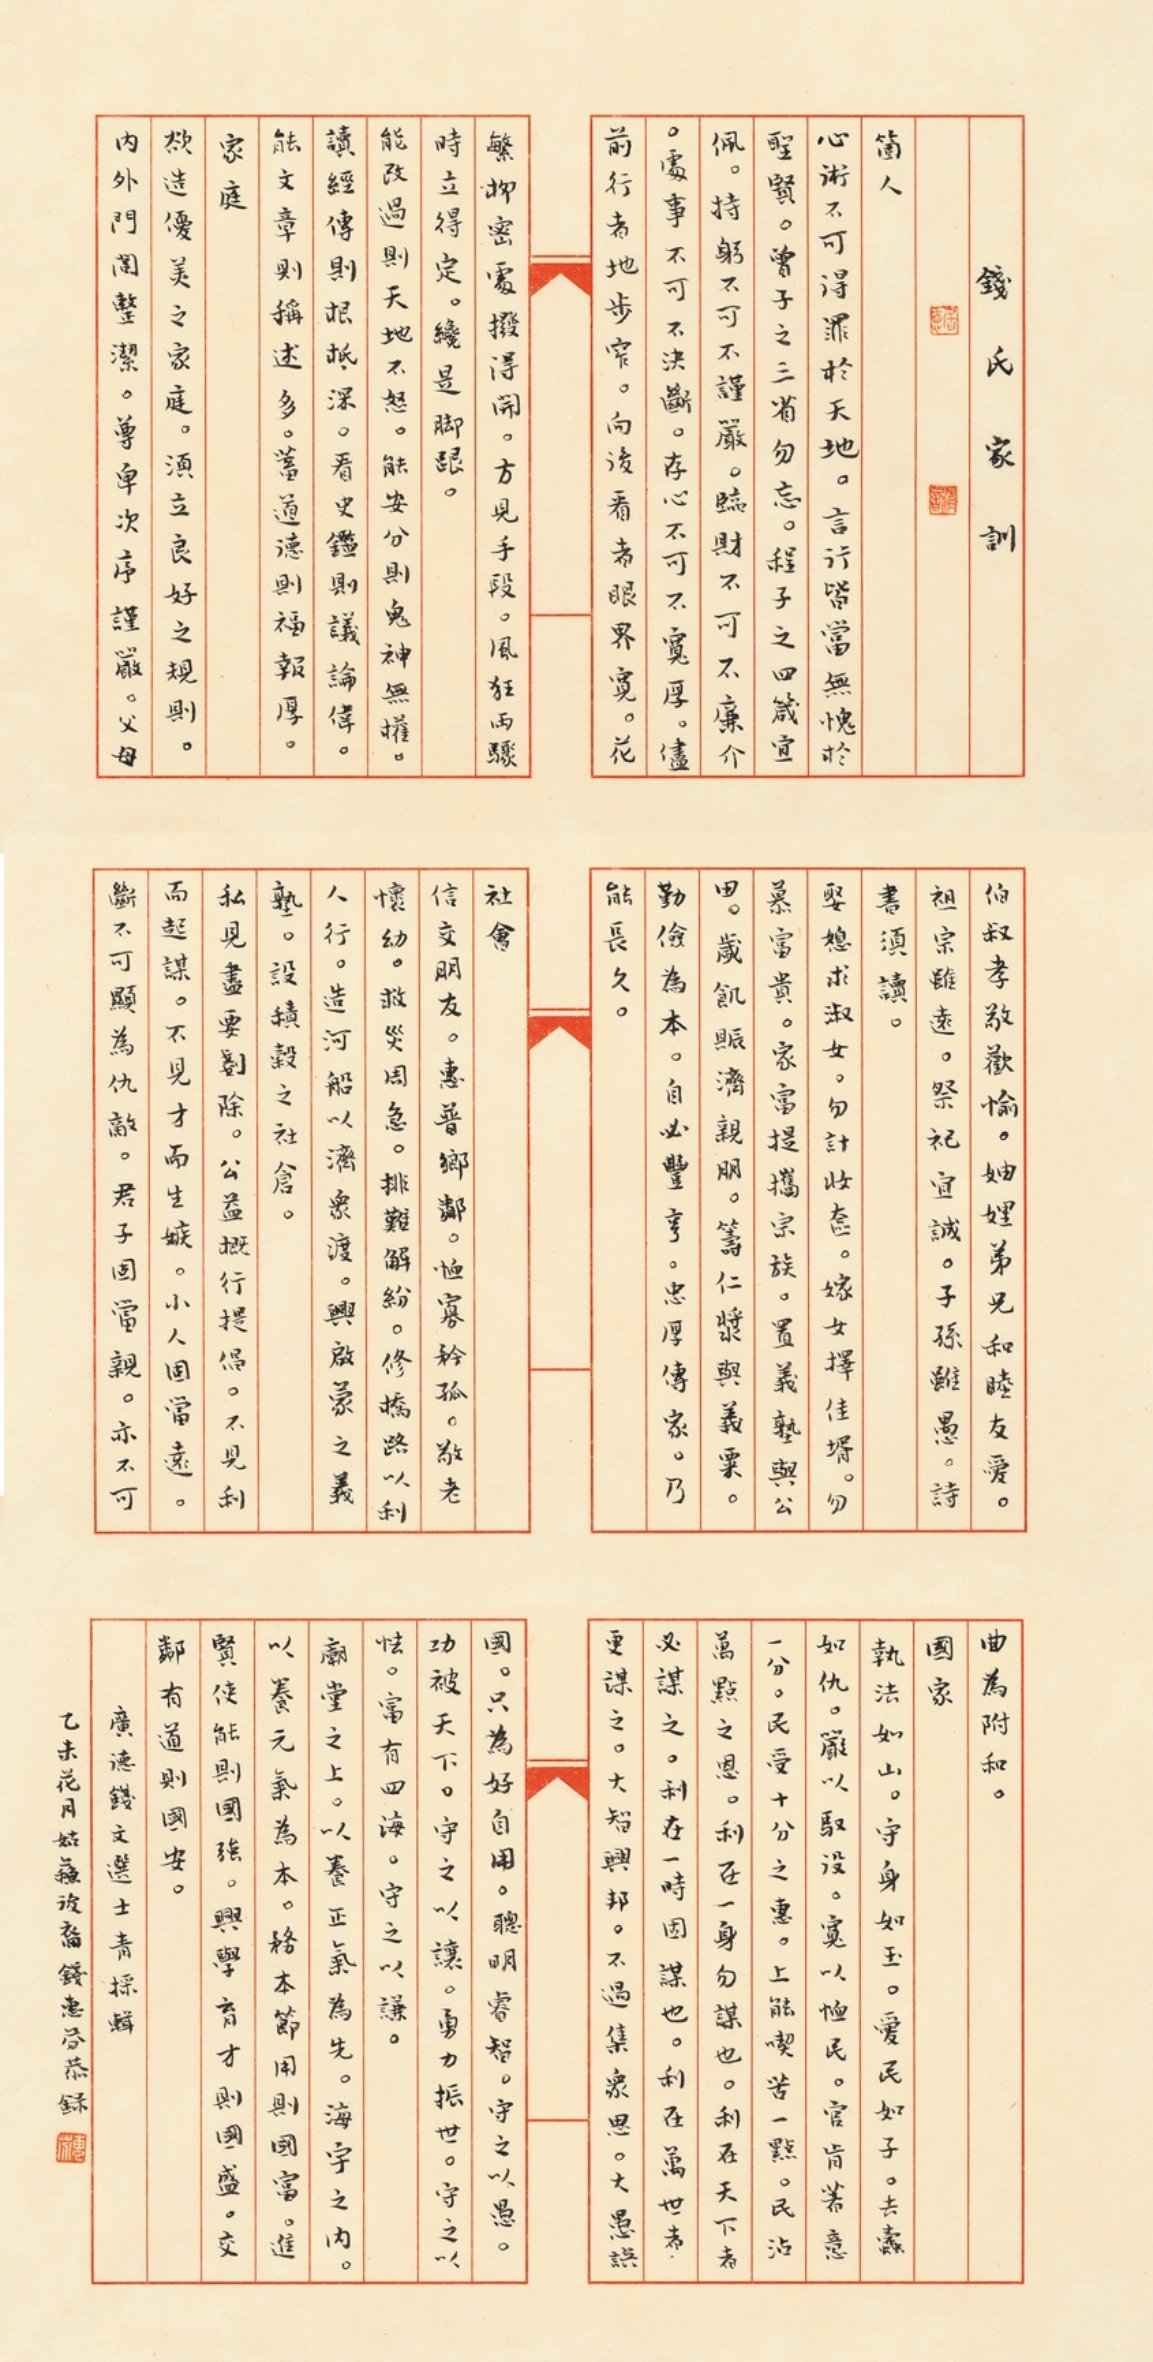 錢氏家訓
箇人
心術不可得罪於天地。言行皆當無愧於
聖賢。曾子之三省勿忘。程子之四箴宜
佩。持躬不可不謹嚴。臨財不可不廉介
。處事不可不決斷。存心不可不寬厚。儘
前行者地步窄。向後看者眼界寬。花
繁柳密處撥得開。方見手段。風狂雨驟
時立得定。纔是脚跟。
能改過則天地不怒。能安分則鬼神無權。
讀經傳則根柢深。看史鑑則議論偉。
能文章則稱述多。蓄道德則福報厚。
家庭
欲造優美之家庭。須立良好之規則。
內外門閭整潔。尊卑次序謹嚴。父母
伯叔孝敬歡愉。妯娌弟兄和睦友愛。
祖宗雖遠。祭祀宜誠。子孫雖愚。詩
書須讀。
娶媳求淑女。勿計妝奩。嫁女擇佳壻。勿
慕富貴。家富提攜宗族。置義塾與公
田。歲飢賑濟親朋。籌仁漿與義粟。
勤儉為本。自必豐亨。忠厚傳家。乃
能長久。
社會
信交朋友。惠普鄉鄰。恤寡矜孤。敬老
懷幼。救災周急。排難解紛。修橋路以利
人行。造河船以濟衆渡。興啟蒙之義
塾。設積穀之社倉。
私見盡要剷除。公益概行提倡。不見利
而起謀。不見才而生嫉。小人固當遠。
斷不可顯為仇敵。君子固當親。亦不可
曲為附和。
國家
執法如山。守身如玉。愛民如子。去蠹
如仇。嚴以馭役。寬以恤民。官肯著意
一分。民受十分之惠。上能喫苦一點。民沾
萬點之恩。利在一身勿謀也。利在天下者
必謀之。利在一時固謀也。利在萬世者
更謀之。大智興邦。不過集衆思。大愚誤
國。只為好自用。聰明睿智。守之以愚。
功被天下。守之以讓。勇力振世。守之以
怯。富有四海。守之以謙。
廟堂之上。以養正氣為先。海宇之內。
以養元氣為本。務本節用則國富。進
賢使能則國強。興學育才則國盛。交
鄰有道則國安。
廣德錢文選士青採輯
乙未花月姑蘇後裔錢惠芬恭錄